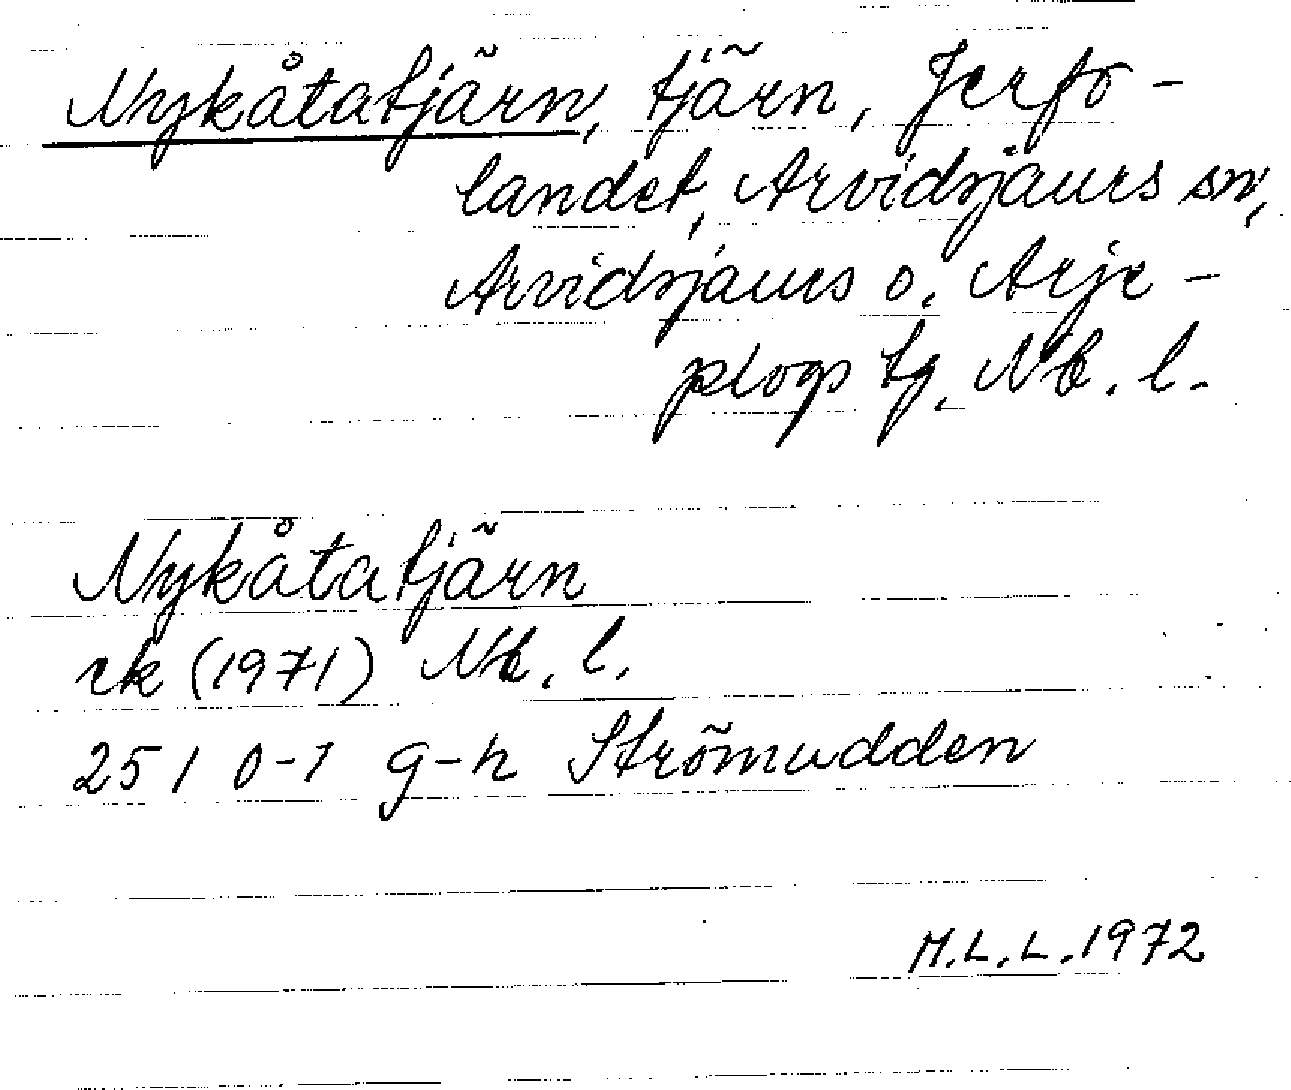 Nykåtatjärn, tjärn, Jerfo-
landet, Arvidsjaurs sn,
Arvidsjaurs o. Arje-
plogs tg. Nb. l.
Nykåtatjärn
rk (1971) Nb. l.
25 I 0-1 g-h Strömudden
M.L.L. 1972